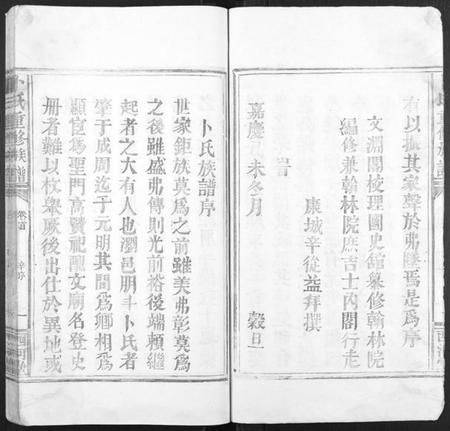 有以振其家聲於弗墜焉是為序
文淵閣校理國史館纂修翰林院
編修兼翰林院庶吉士內閣行走
康城辛從益拜撰
旹
嘉慶己未冬月
穀旦
卜氏族譜序
世家鉅族莫為之前雖美弗彰莫為
之後雖盛弗傳則光前裕後端賴繼
起者之大有人也瀏邑明斗卜氏者
肇于成周迄于元明其間為卿相為
顯宦為聖門高賢祀配文廟名登史
冊者難以枚舉厥後出仕於異地或
卜氏重修族譜
卷首
辛序
一
西河堂